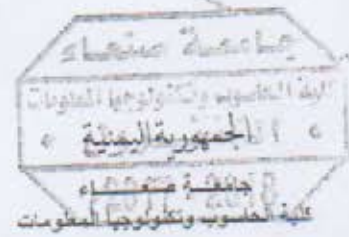 جامعة صنعاء
كلية الحاسوب وتكنولوجيا المعلومات
الجمهورية اليمنية
جامعة صنعاء
كلية الحاسوب وتكنولوجيا المعلومات